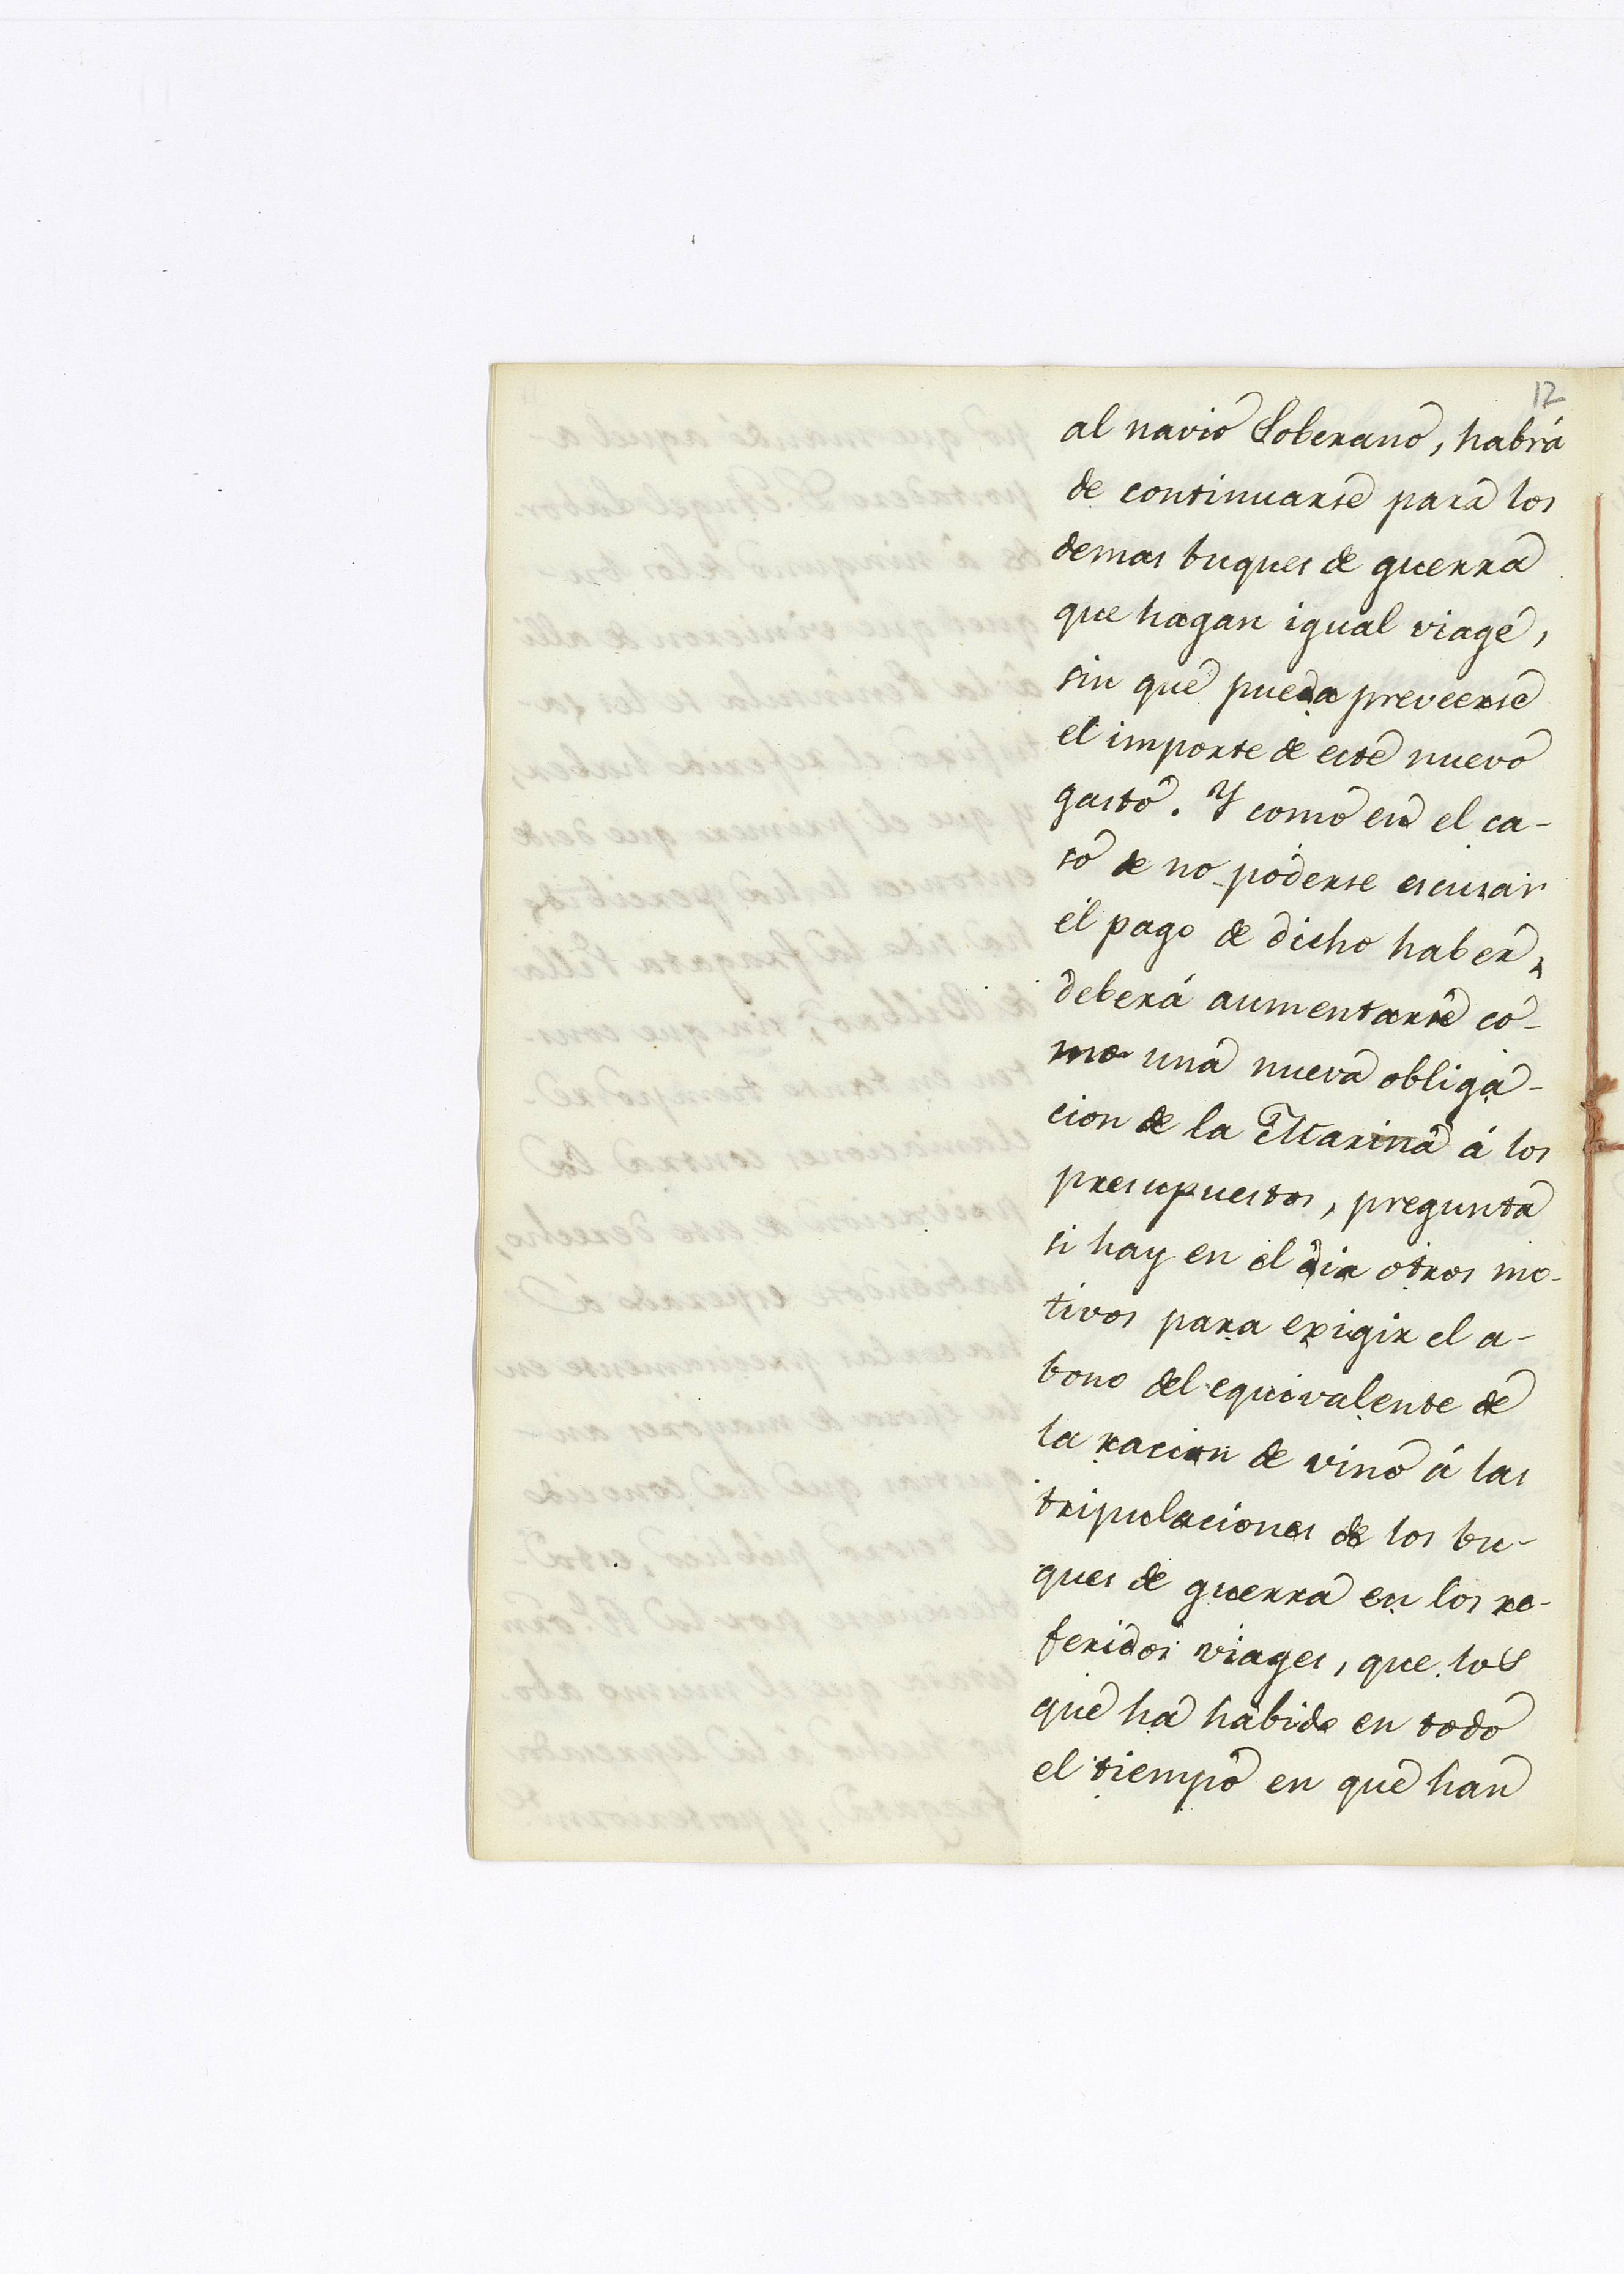 17
al navio Soberano, habrá
de continuarse para los
demas buques de guerra
que hagan igual viage,
sin que pueda preveerse
el importe de este nuevo
gasto. Y como en el ca-
so de no poderse escusar
el pago de dicho haber,
deberá aumentarse co-
mo una nueva obliga-
cion de la Marina á los
presupuestos, pregunta
si hay en el dia otros mo-
tivos para exigir el a-
bono del equivalente de
la racion de vino á las
tripulaciones de los bu-
ques de guerra en los re-
feridos viages, que los
que ha habido en todo
el tiempo en que han